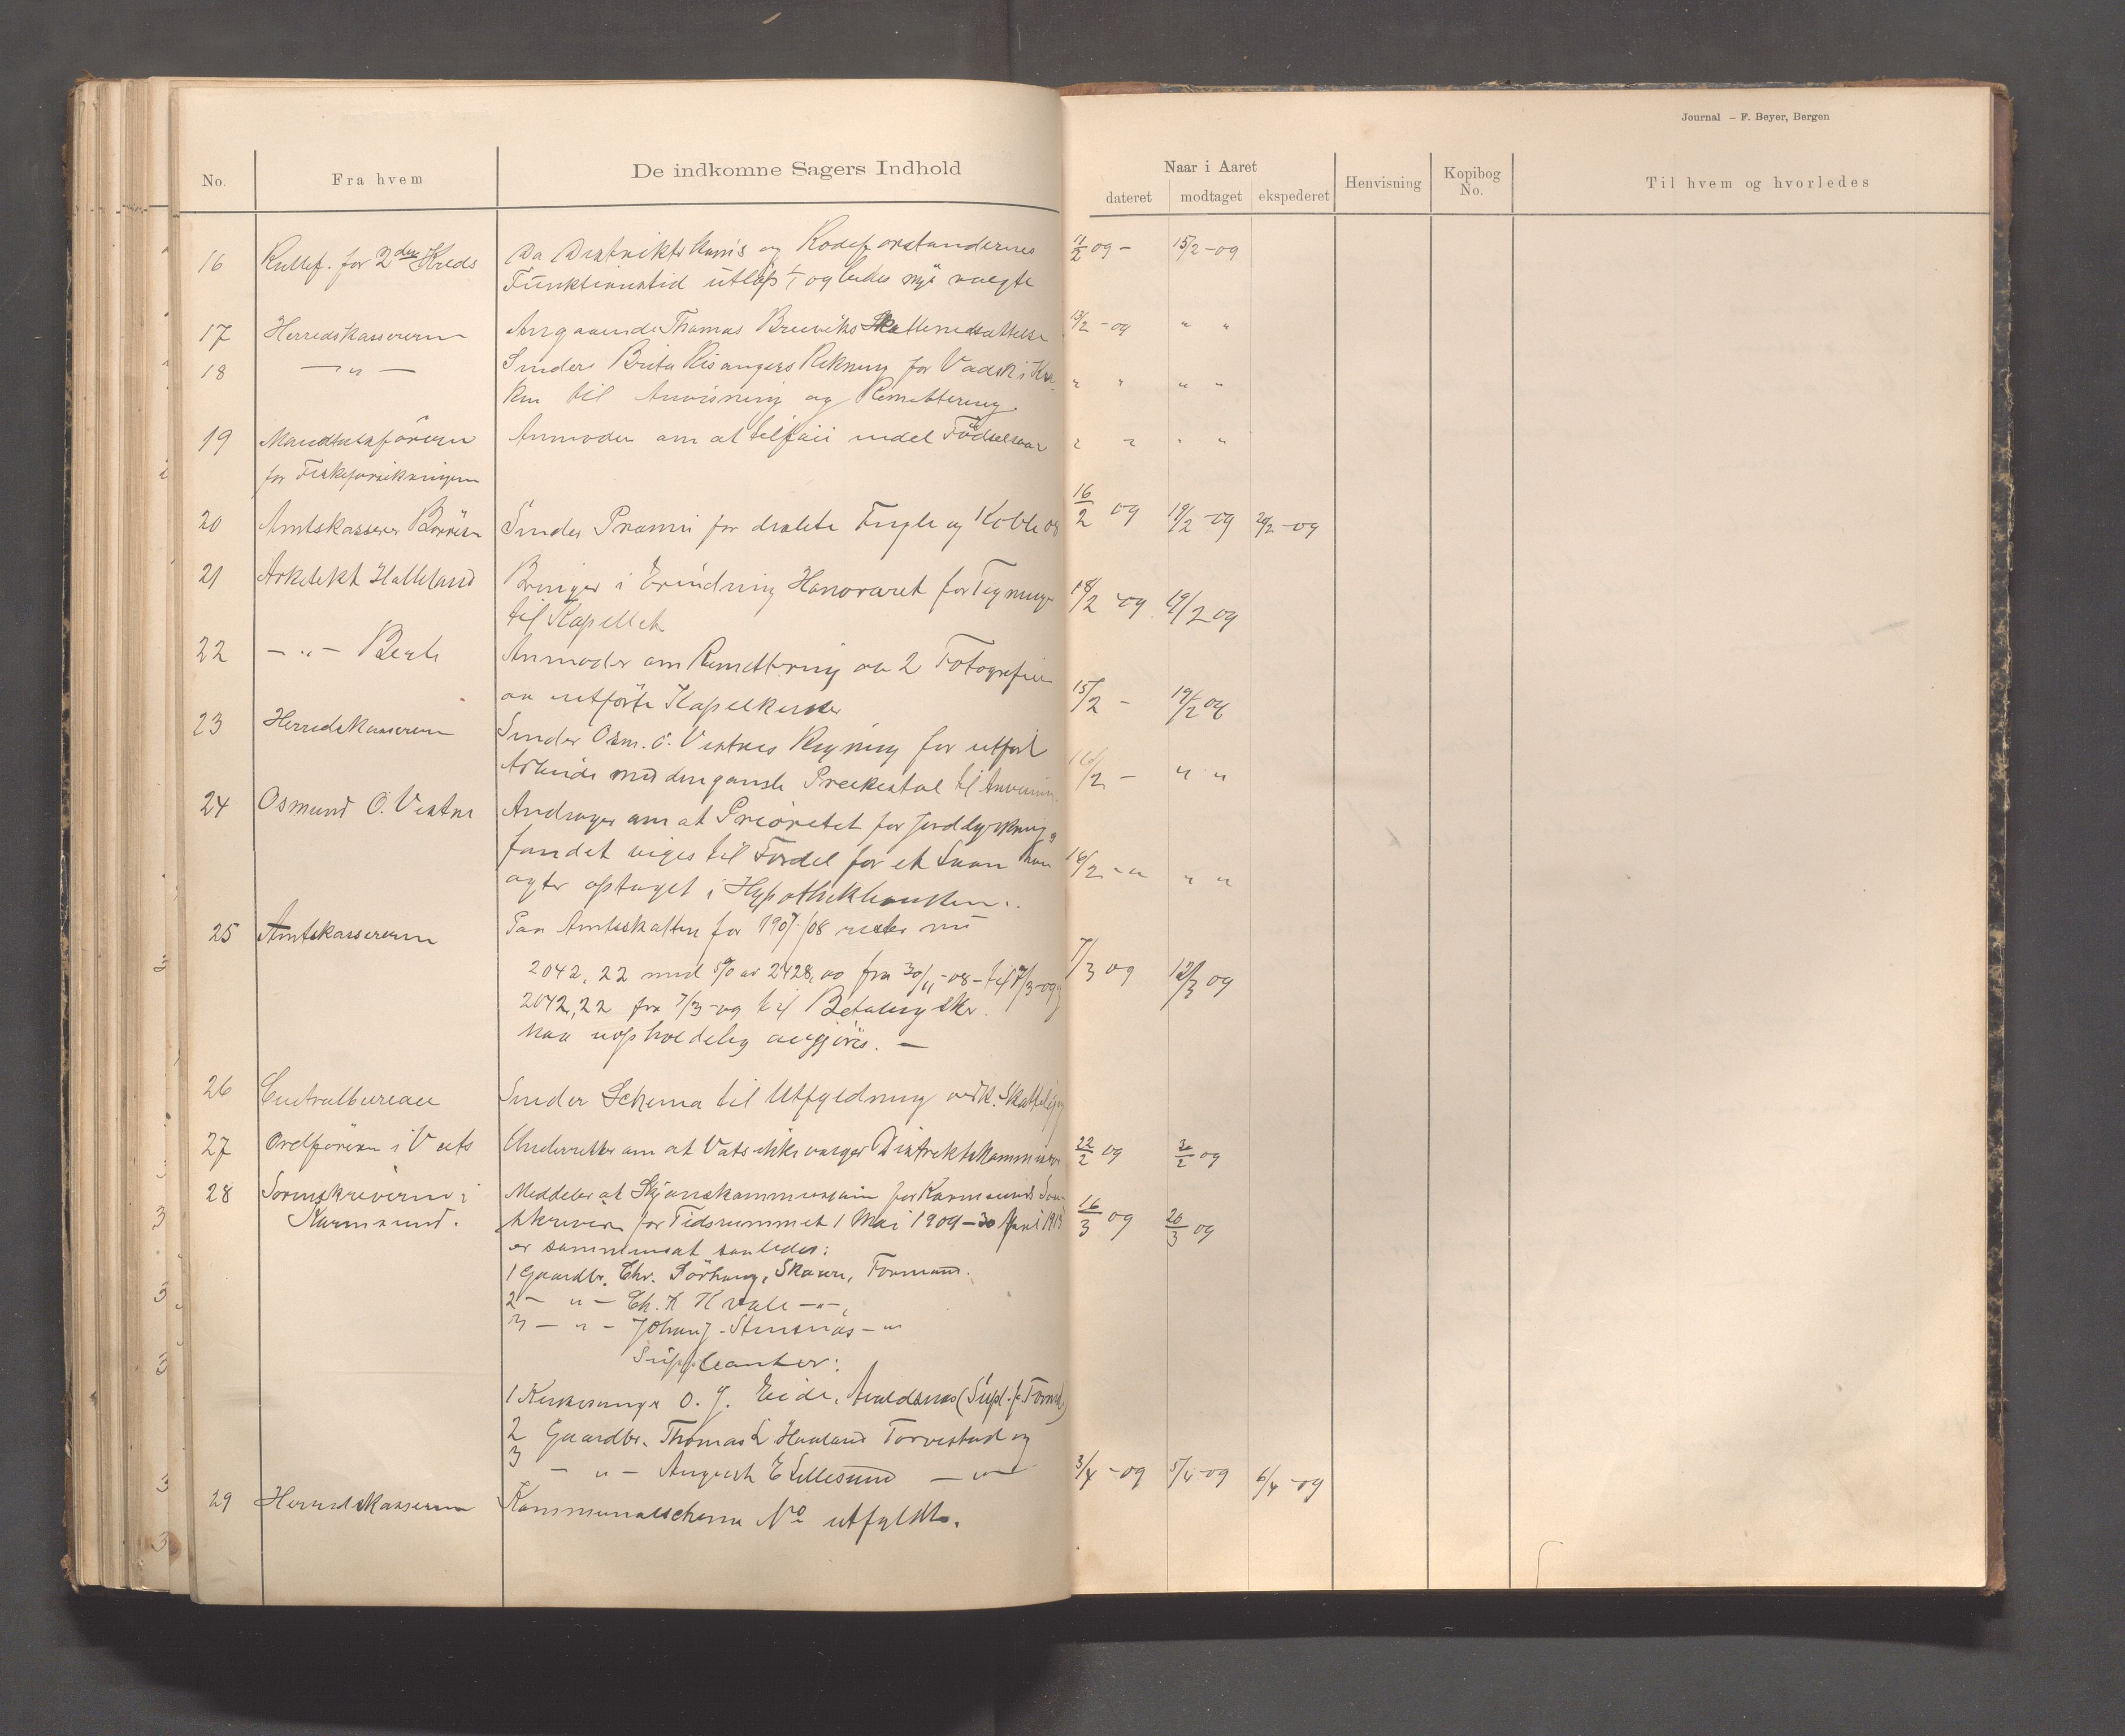 Journal – F. Beyer, Bergen
No. Fra hvem De indkomne Sagers Indhold Naar i Aaret dateret modtaget ekspederet Henvisning Kopibog No. Til hvem og hvorledes
16 Rullef. for 2den Kreds Da Distriktskoms og Rodeforstandernes 11/2 09 - 15/2-09
Funktionstid utløp 1/1 og bedes nye valgte
17 Herredskassereren Angaaende Thomas Breiviks Skattenedsættelse 13/2-09 " "
18 —"— Sender Brita Risangers Rekning for Vadsk i
til Anvisning og Remittering. " " " "
19 Mandtalsføreren Anmoder om at tilføie endel Fødselsaar " " " "
for Fiskeforsikringen
20 Amtskasserer Sender Præmie for dræbte Fugle og Kobbe 08 16/2 09 19/2-09 20/2-09
21 Arkitekt Halleland Bringer i Erindring Honoraret for Tegninger 18/2-09 19/2 09
til Kapellet
22 —"— Anmoder om Remittering av 2 Fotografier
av utførte 15/2 - 19/2 09
23 Herredskassereren Sender Osm. O. Vestnes Regning for utført
Arbeide med den gamle Prækestol til Anvisning. 16/2 - " "
24 Osmund O. Vestnes Andrager om at Prioritet for Jorddyrknings
fondet viges til Fordel for et Laan han 16/2 - " " "
agter optaget i Hypothekbanken.
25 Amtskassereren Paa Amtsskatten for 1907/08 rester nu
2042,22 med 5% av 2428,00 fra 30/11-08 - til 7/3-09 og 7/3 09 12/3 09
2042,22 fra 7/3-09 til Betaling sker.
maa uopholdelig avgjøres. —
26 Centralbureau Sender Schema til Utfyldning vedk.
27 Ordføreren i Vats Underretter om at Vats ikke vælger Distriktskommissær 22/2 09 2/2 09
28 Sorenskriveren i Meddeler at Skjønskommissionen for Karmsunds Soren
Karmsund. skriveri for Tidsrummet 1 Mai 1909 - 30 April 1913 16/3 09 20/3 09
er sammensat saaledes:
1 Gaardbr. Chr. Sørhaug, Skaare, Formand.
2 — " — Ch. K Kvale —"—,
3 — " — Johan J. Stensnæs — "
Suppleanter:
1 Kirkesanger O. J. Eide, Avaldsnes (Supl. f. Formd.)
2 Gaardbr. Thomas L Haaland Torvestad og
3 — " — August E Lillesund — " —
29 Herredskassereren Kommunalschema No utfyldt. 3/4-09 5/4-09 6/4-09